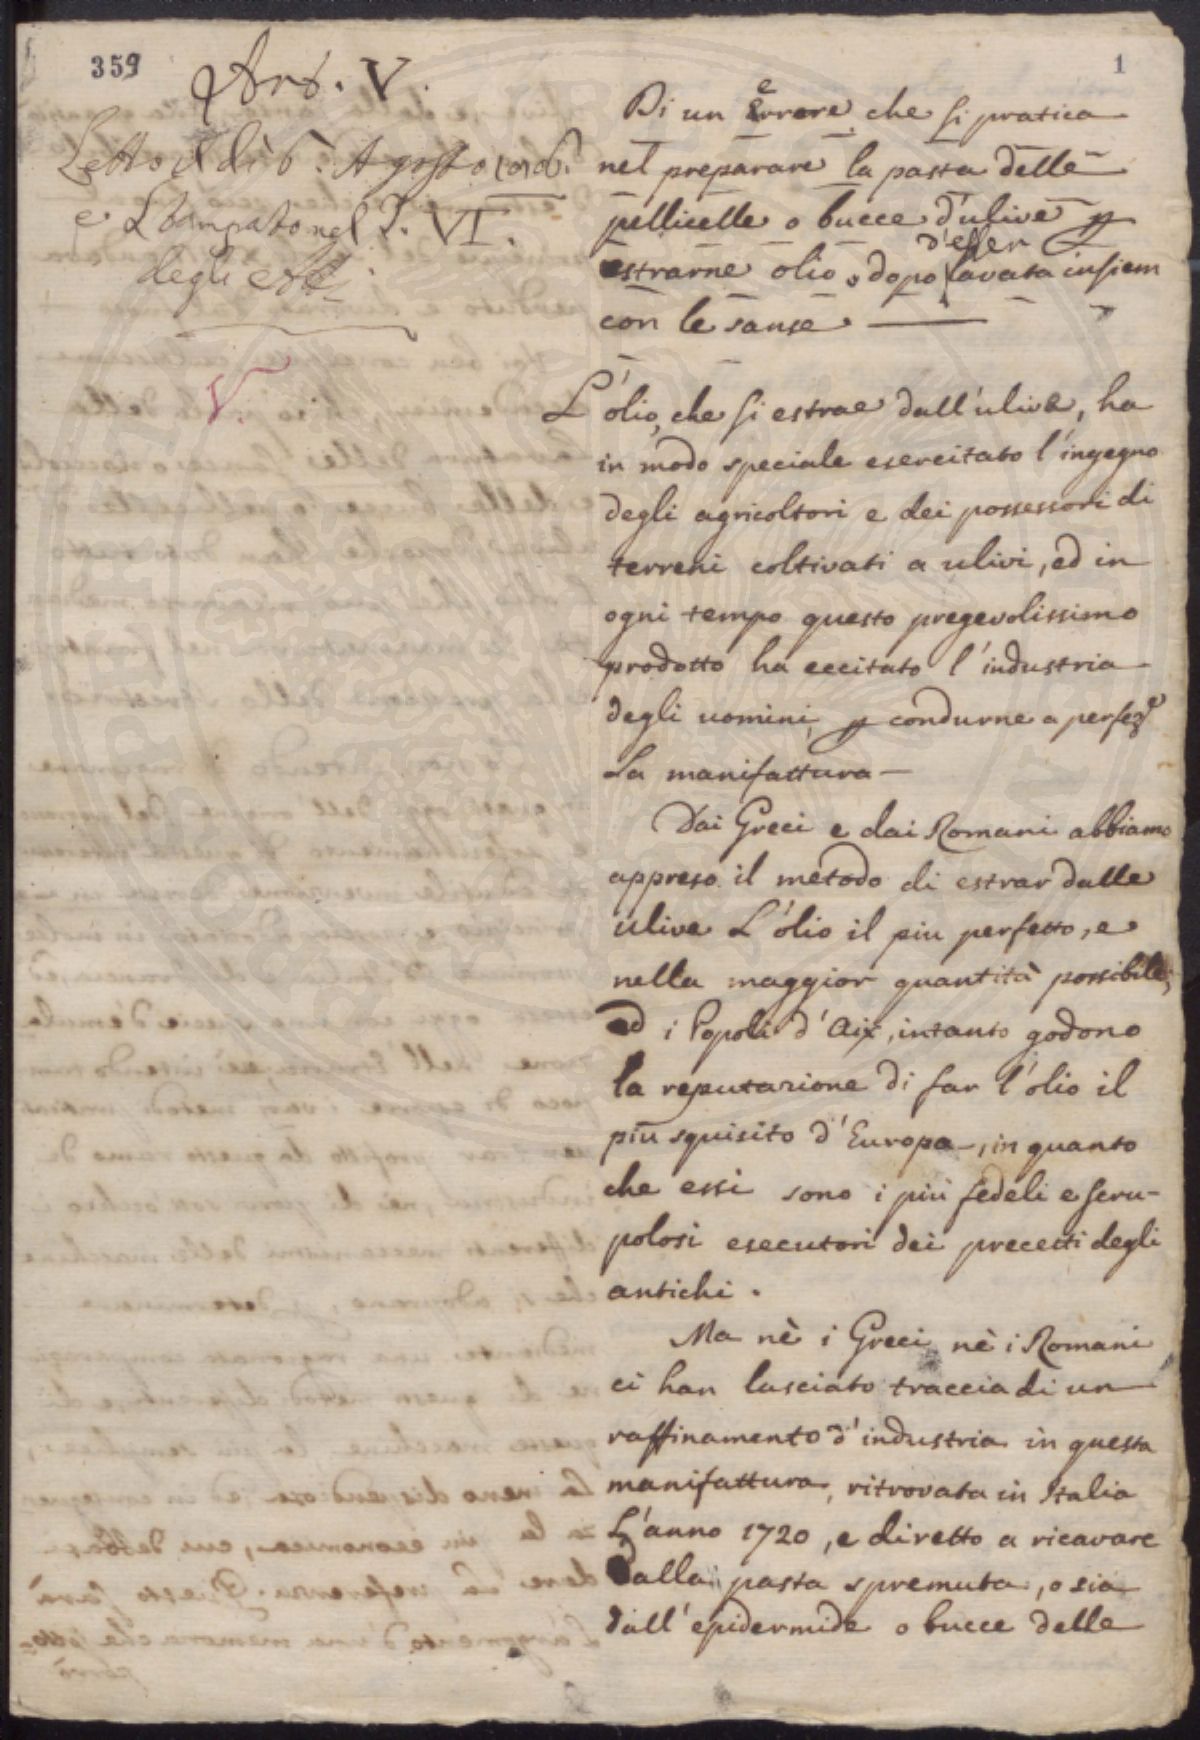 359
1
Art. V.
Letto il dì 6. Agosto
e Stampato nel T. VI.
degli Atti
V.
Di un errore che si pratica
nel preparare la pasta delle
pellicelle o bucce d'ulive p
estrarne olio, dopo d'esser lavata insiem
con le sanse —
L'olio, che si estrae dall'ulive, ha
in modo speciale esercitato l'ingegno
degli agricoltori e dei possessori di
terreni coltivati a ulivi, ed in
ogni tempo questo pregevolissimo
prodotto ha eccitato l'industria
degli uomini, p condurne a perfez.e
la manifattura —
Dai Greci e dai Romani abbiamo
appreso il metodo di estrar dalle
ulive L'olio il piu perfetto, e
nella maggior quantità possibile;
ed i Popoli d'Aix, intanto godono
la reputazione di far l'olio il
più squisito d'Europa, in quanto
che essi sono i più fedeli e scru-
polosi esecutori dei precetti degli
antichi.
Ma nè i Greci nè i Romani
ci han lasciato traccia di un
raffinamento d'industria in questa
manifattura, ritrovata in Italia
L'anno 1720, e diretto a ricavare
dalla pasta spremuta, o sia
dall'epidermide o bucce delle